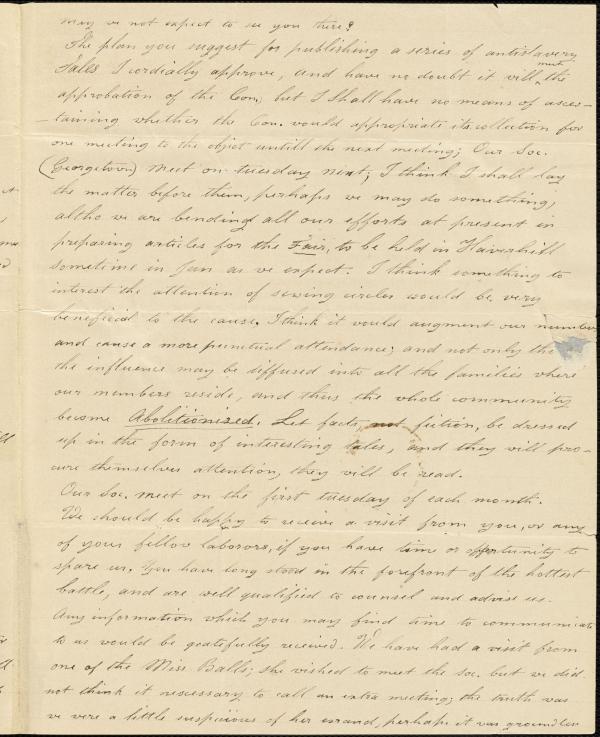 may we not expect to see you there?
The plan you suggest for publishing a series of antislavery
Tales I cordially approve, and have no doubt it will meet the
approbation of the Com; but I shall have no means of ascer-
-taining whether the Com. would appropriate its collection for
one meeting to the object untill the next meeting; Our Soc.
(Georgetown) meet on tuesday next; I think I shall lay
the matter before them, perhaps we may do something,
altho we are bending all our efforts at present in
preparing articles for the Fair, to be held in Haverhill
sometime in Jan as we expect. I think something to
interest the attention of sewing circles would be very
beneficial to the cause. I think it would augment our number
and cause a more punctual attendance; and not only the
the influence may be diffused into all the families where
our members reside, and thus the whole community
become Abolitionized. Let facts, not fiction, be dressed
up in the form of interesting tales, and they will pro-
cure themselves attention, they will be read.
Our Soc. meet on the first tuesday of each month.
We should be happy to receive a visit from you, or any
of your fellow laborors, if you have time or opportunity to
spare us. You have long stood in the forefront of the hottest
battle, and are well qualified to counsel and advise us.
Any information which you may find time to communicate
to us would be gratefully received. We have had a visit from
one of the Miss Balls; she wished to meet the soc. but we did
not think it nescessary to call an extra meeting; the truth was
we were a little suspicious of her errand, perhaps it was groundless